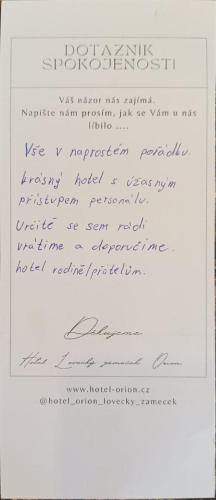 DOTAZNÍK
SPOKOJENOSTI
Váš názor nás zajímá.
Napište nám prosím, jak se Vám u nás
líbilo ....
Vše v naprostém pořádku.
krásný hotel s úžasným
přístupem personálu.
Určitě se sem rádi
vrátíme a doporučíme.
hotel rodině/přátelům.
Děkujeme
Hotel Lovecký zámeček Orion
www.hotel-orion.cz
@hotel_orion_lovecky_zamecek